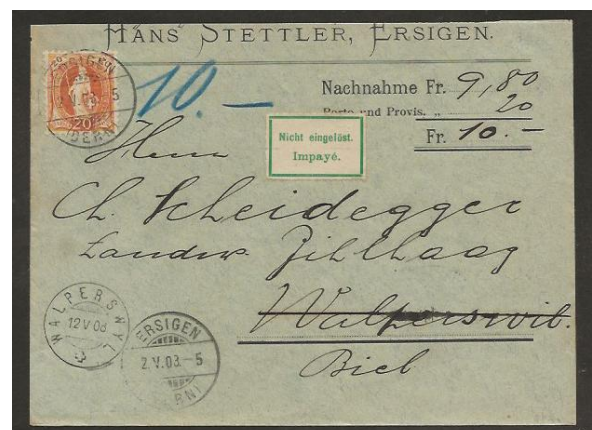 HANS STETTLER, ERSIGEN.
ERSIGEN
V.03 5
(BERN)
20
10.-
Nachnahme Fr. 9,80
Porto und Provis. „ 20
Fr. 10.-
Nicht eingelöst.
Impayé.
Herrn
Ch. Scheidegger
Landw. Zihlhaag
Walperswil.
Biel
WALPERSWYL
12 V 03
ERSIGEN
2.V.03-5
(BERN)